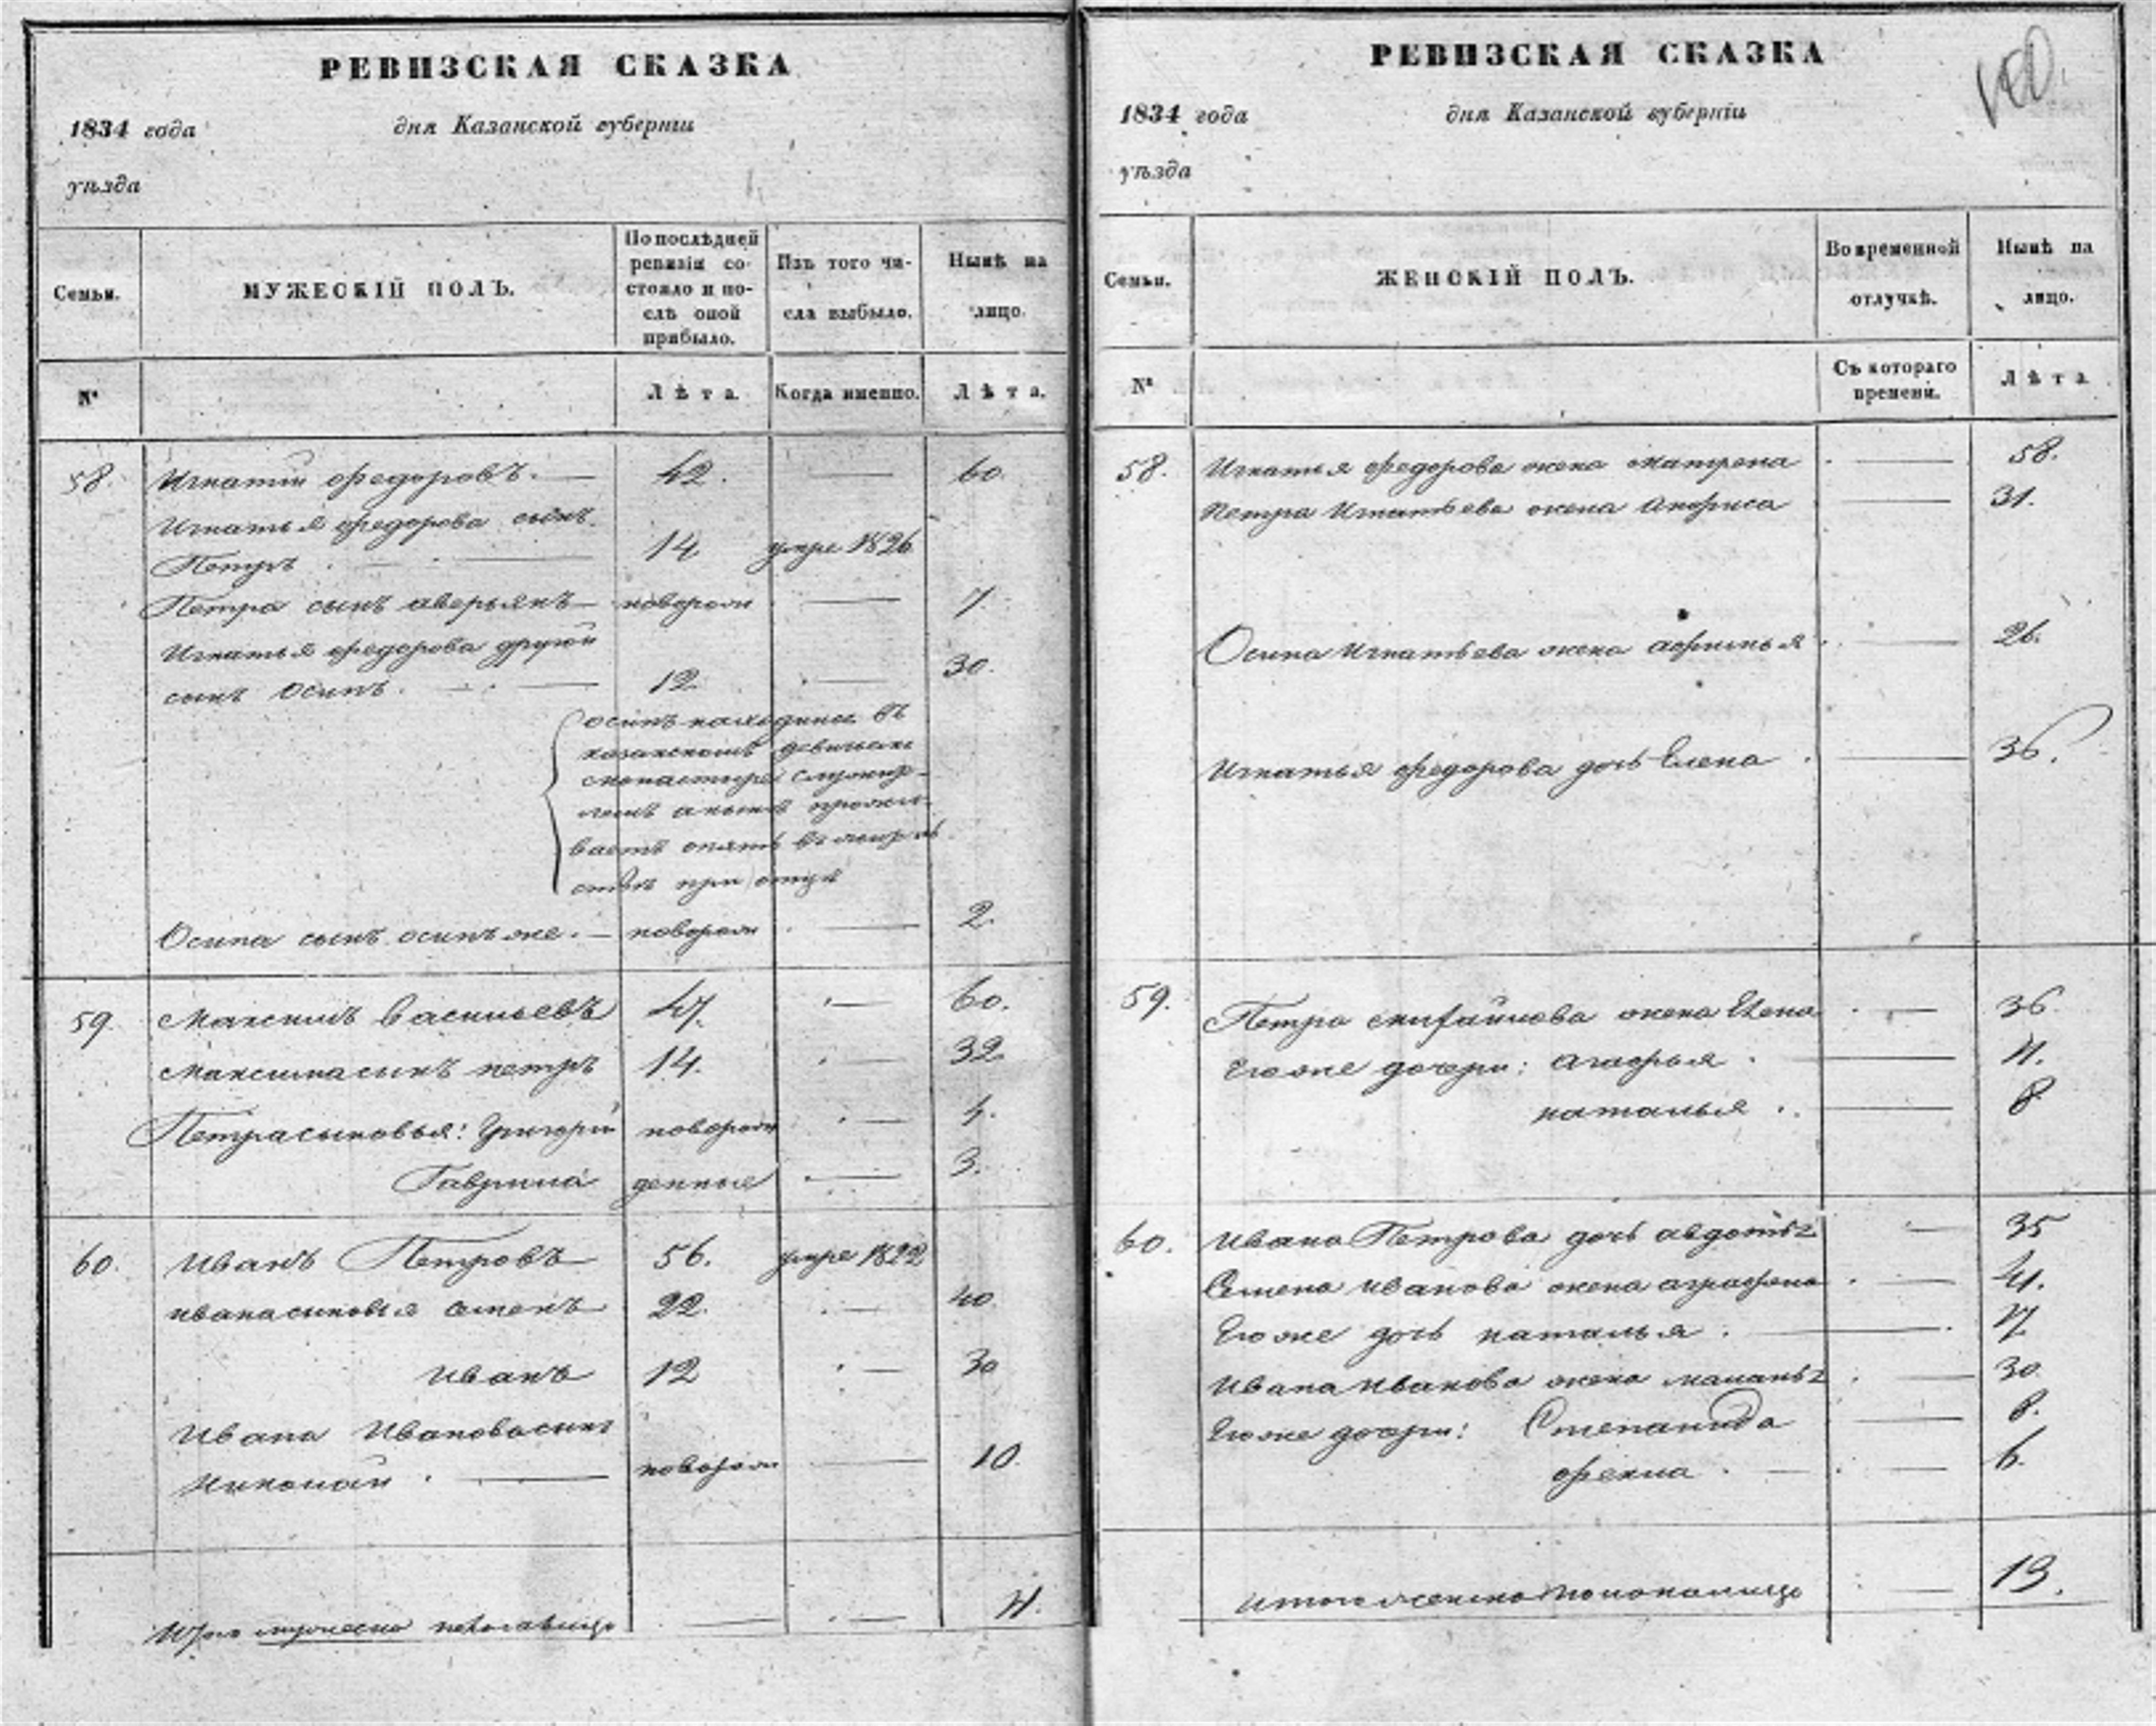 РЕВИЗСКАЯ СКАЗКА
1834 года дня Казанской губерніи
уѣзда
Семьи. МУЖЕСКІЙ ПОЛЪ. По послѣдней ревизіи состояло и послѣ оной прибыло. Изъ того числа выбыло. Нынѣ на лицо.
№ Лѣта. Когда именно. Лѣта.
58. Игнатій федоровъ. — 42. — 60.
Игнатья федорова сынъ
Петръ. — 14. умре 1826
Петра сынъ аверьянъ — новорож — 7.
Игнатья федорова другой
сынъ Осипъ. — 12. — 30.
осипъ находился въ
казанскомъ девичьем
монастыре служит-
лемъ а нынѣ прожи-
ваетъ опять въ
при отцѣ
Осипа сынъ осипъ же. — новорож — 2.
59. Максимъ Васильевъ 47. — 60.
Максима сынъ петръ 14. — 32
Петра сыновья: Григорій новорож — 4.
Гаврила денные — 3.
60. Иванъ Петровъ 56. умре 1822
ивана сыновья семенъ 22. — 40
Иванъ 12 — 30
Ивана Иванова сынъ
Николай. — новорож — 10.
Итого мужеска пола — —
РЕВИЗСКАЯ СКАЗКА
1834 года дня Казанской губерніи
уѣзда
Семьи. ЖЕНСКІЙ ПОЛЪ. Во временной отлучкѣ. Нынѣ на лицо.
№ Съ котораго времени. Лѣта.
58. Игнатья федорова жена матрена — 58.
Петра Игнатьева жена анфиса — 31.
Осипа Игнатьева жена афимья — 26.
Игнатья федорова дочь Елена — 36.
59. Петра жена Елена — 36
Его же дочери: агафья — 11.
наталья — 8
60. Ивана Петрова дочь авдотья — 35
Семена иванова жена аграфена — 41.
Его же дочь наталья. — 17
Ивана иванова жена маланья — 30
Его же дочери: Степанида — 8.
фекла — 6.
итого женска пола на лицо — 13.